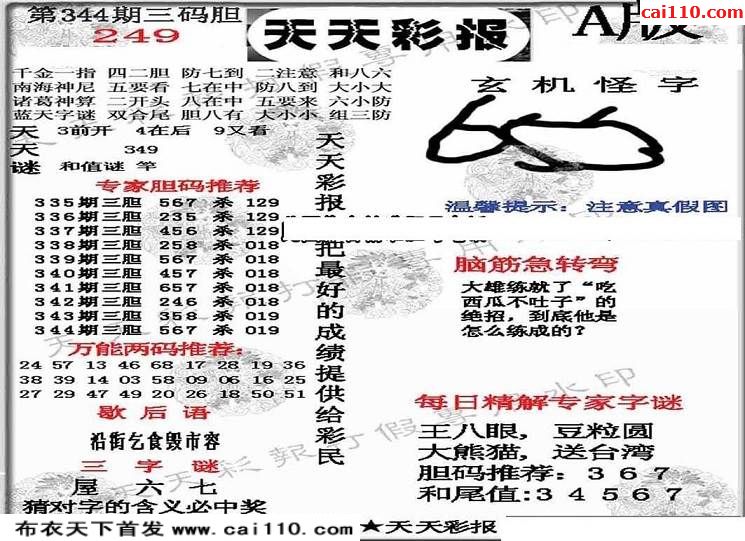 第344期三码胆
249
天天彩报
A版
cai110.com
千金一指 四二胆 防七到 二注意 和八六
南海神尼 五要看 七在中 防八到 大小大
诸葛神算 二开头 八在中 五要来 六小防
蓝天字谜 双合尾 胆八有 大小小 组三防
天 3前开 4在后 9又看
天 349
谜 和值谜 竿
专家胆码推荐
335期三胆 567 杀 129
336期三胆 235 杀 129
337期三胆 456 杀 129
338期三胆 258 杀 018
339期三胆 560 杀 018
340期三胆 457 杀 018
341期三胆 657 杀 018
342期三胆 246 杀 018
343期三胆 358 杀 019
344期三胆 567 杀 019
万能两码推荐:
24 57 13 46 68 17 28 19 36
38 39 14 03 58 09 06 16 25
27 29 47 49 20 26 18 50 51
歇后语
沿街乞食毁市容
三字谜
屋 六 七
猜对字的含义必中奖
天天彩报
把最好的成绩提供给彩民
玄机怪字
温馨提示: 注意真假图
脑筋急转弯
大雄练就了“吃
西瓜不吐子”的
绝招, 到底他是
怎么练成的?
每日精解专家字谜
王八眼, 豆粒圆
大熊猫, 送台湾
胆码推荐: 3 6 7
和尾值:3 4 5 6 7
布衣天下首发 www.cai110.com
★天天彩报